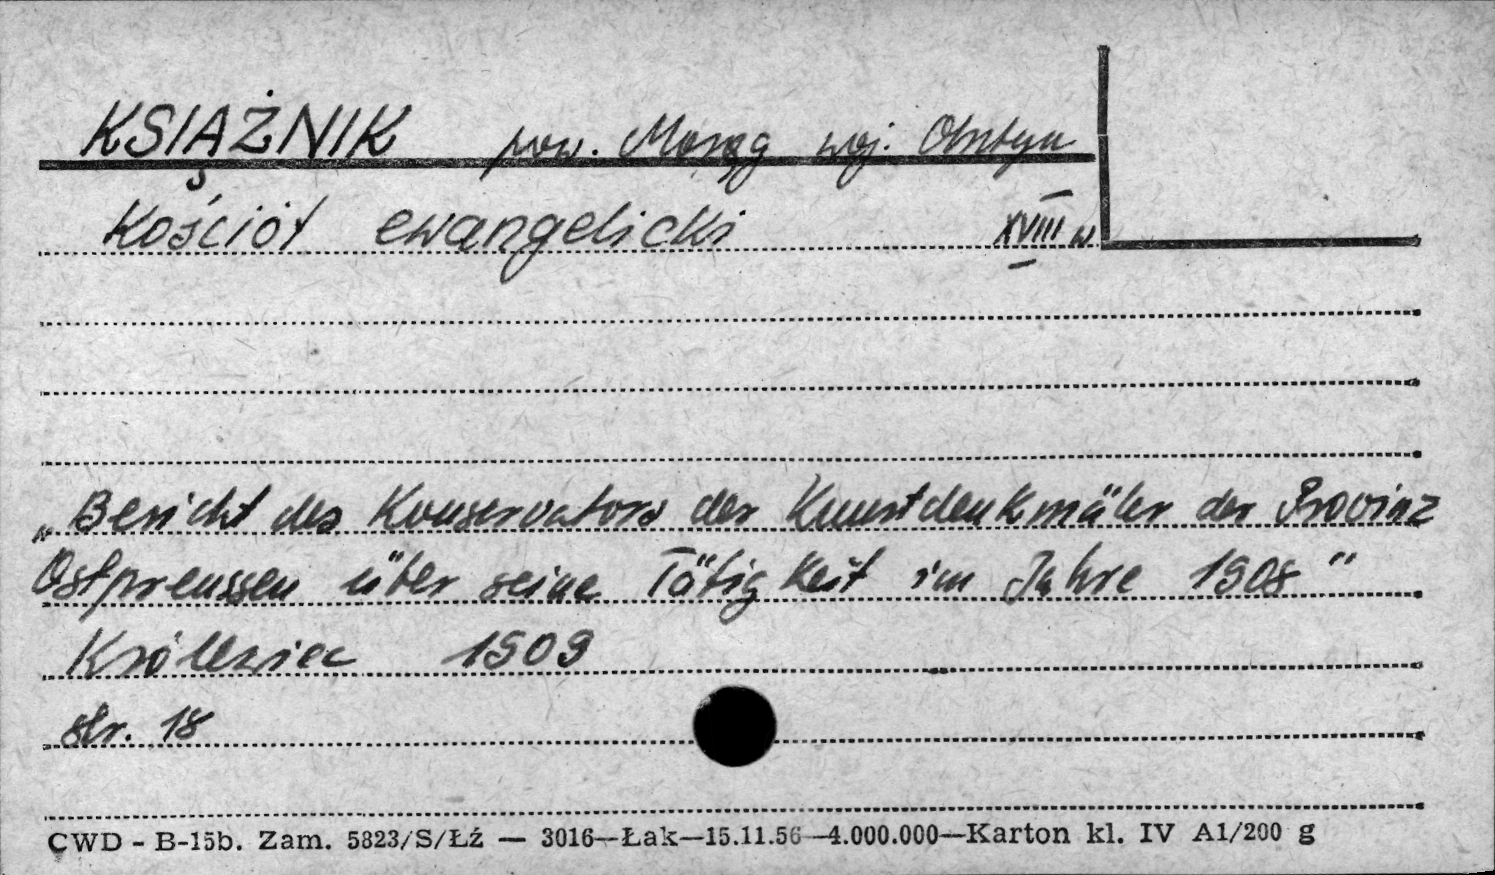 KSIĄŻNIK pow. Morąg woj. Olsztyn
Kościół ewangelicki XVIII w.
„Bericht des Konservators der Kunstdenkmäler der Provinz
Ostpreussen über seine Tätigkeit im Jahre 1908"
Królewiec 1909
str. 18
CWD - B-15b. Zam. 5823/S/Łź — 3016—Łak—15.11.56—4.000.000—Karton kl. IV A1/200 g